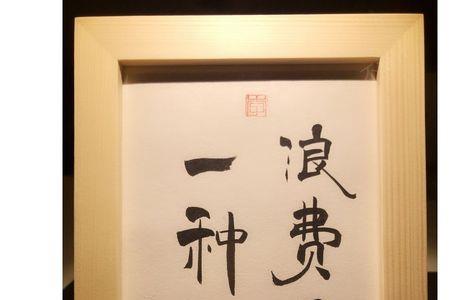 浪费
一种